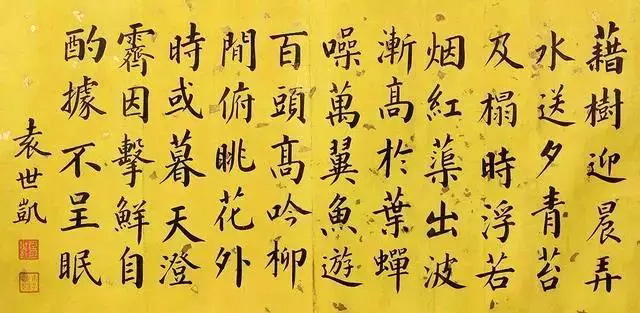 藉樹迎晨弄
水送夕青苔
及榻時浮若
烟紅蕖出波
漸高於葉蟬
噪萬翼魚遊
百頭高吟柳
間俯眺花外
時或暮天澄
霽因擊鮮自
酌據不呈眠
袁世凱